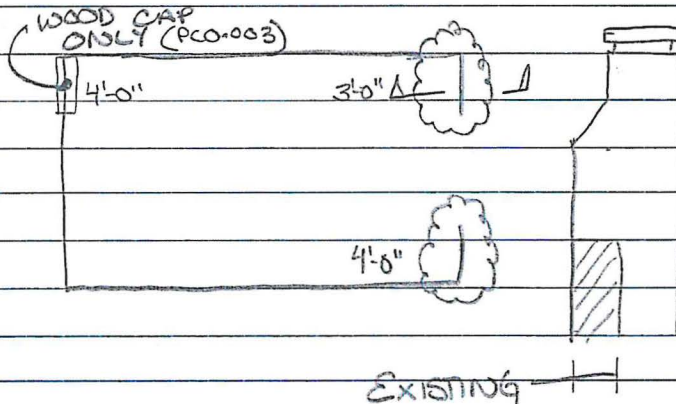 WOOD CAP
ONLY (PCO.003)
4'-0"
3'-0"
4'-0"
EXISTING